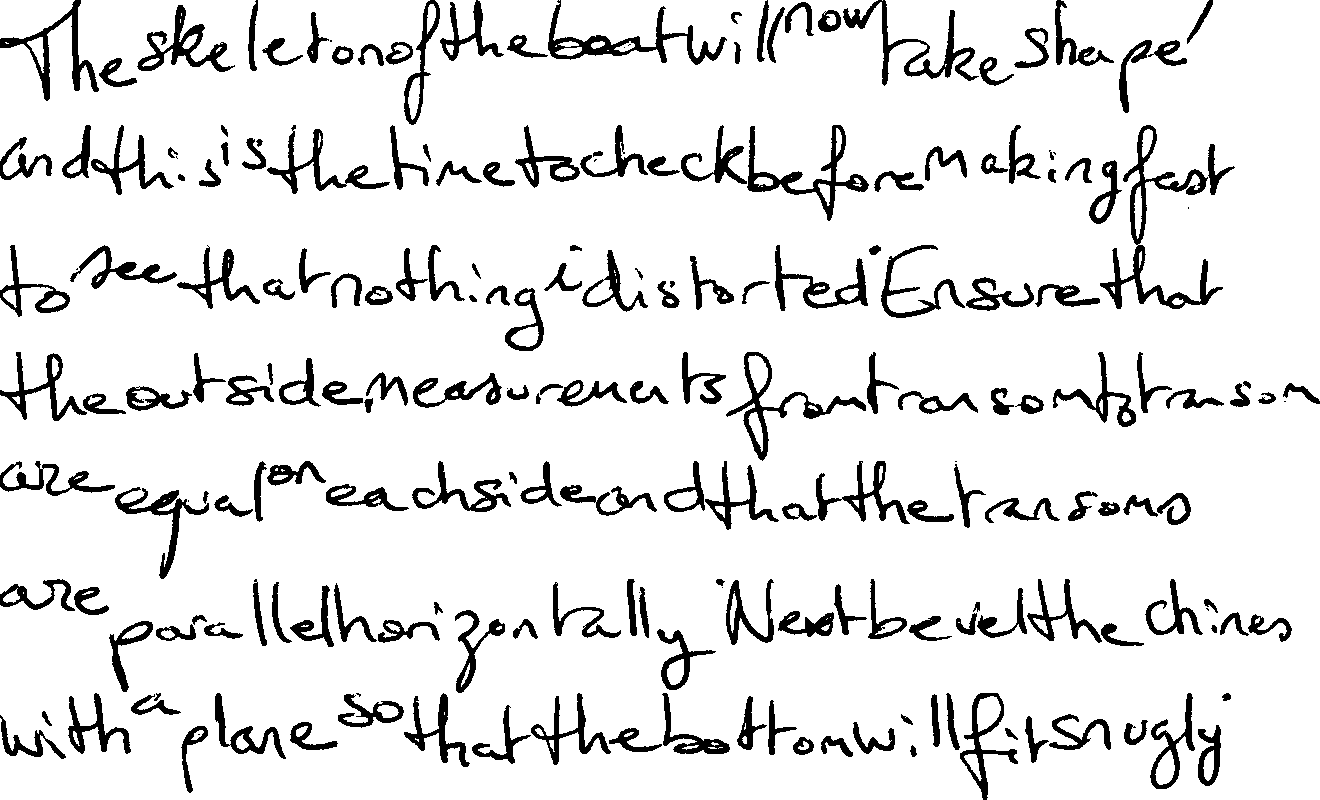 The skeleton of the boat will now take shape,
and this is the time to check before making fast
to see that nothing is distorted. Ensure that
the outside measurements from transom to transom
are equal on each side and that the transoms
are parallel horizontally. Next bevel the chines
with a plane so that the bottom will fit snugly.